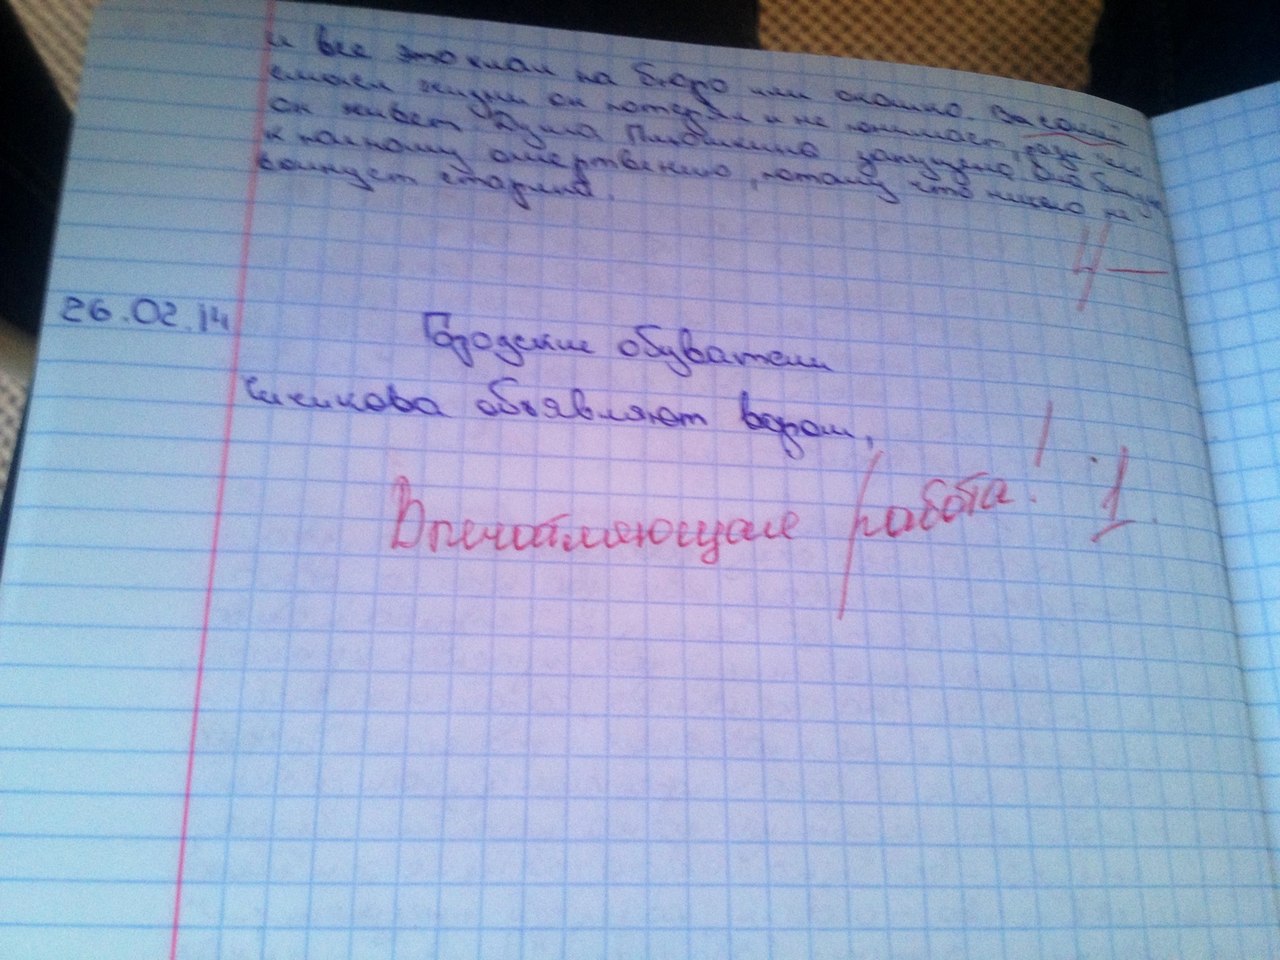 и все это клал на бюро или окошко. Весь
смысл жизни он потерял и не понимает, ради чего
он живет. Душа Плюшкина запущена. Она близка
к полному омертвению, потому что ничего не
волнует старика.
4—
26.02.14
Городские обыватели
Чичикова объявляют вором,
Впечатляющая работа! 1